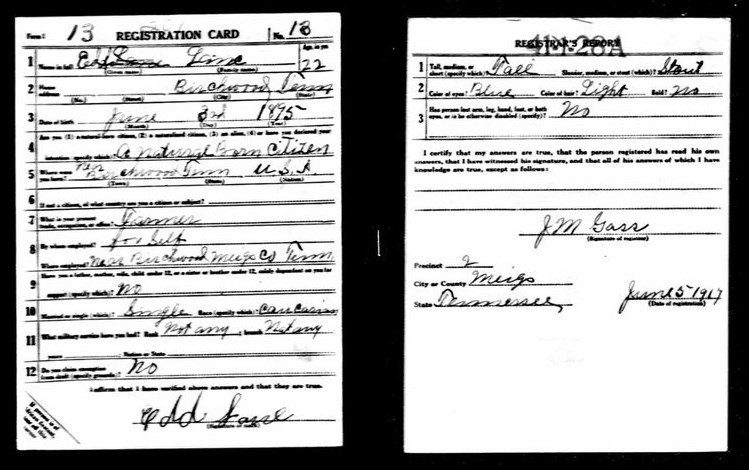 Form 1 13 REGISTRATION CARD No. 13
1 Name in full Age, in yrs 22
(Given name) (Family name)
2 Home address Birchwood Tenn
(No.) (Street) (City) (State)
3 Date of birth June 3rd 1895
(Month) (Day) (Year)
Are you (1) a natural-born citizen, (2) a naturalized citizen, (3) an alien, (4) or have you declared your
4 intention (specify which)? A natural Born Citizen
5 Where were you born? Near Birchwood Tenn U.S.A
(Town) (State) (Nation)
6 If not a citizen, of what country are you a citizen or subject?
7 What is your present trade, occupation, or office? Farmer
8 By whom employed? for Self
Where employed? Near Birchwood Meigs Co Tenn.
Have you a father, mother, wife, child under 12, or a sister or brother under 12, solely dependent on you for
9 support (specify which)? No
10 Married or single (which)? Single Race (specify which)? Caucasian
11 What military service have you had? Rank Not any ; branch Not any
years Nation or State
12 Do you claim exemption from draft (specify grounds)? No
I affirm that I have verified above answers and that they are true.
Edd
(Signature or mark)
REGISTRAR'S REPORT
1 Tall, medium, or short (specify which)? Tall Slender, medium, or stout (which)? Stout
2 Color of eyes? Blue Color of hair? Light Bald? No
3 Has person lost arm, leg, hand, foot, or both eyes, or is he otherwise disabled (specify)? No
I certify that my answers are true, that the person registered has read his own
answers, that I have witnessed his signature, and that all of his answers of which I have
knowledge are true, except as follows:
J M Gass
(Signature of registrar)
Precinct 2
City or County Meigs
State Tennessee June 5 1917
(Date of registration)